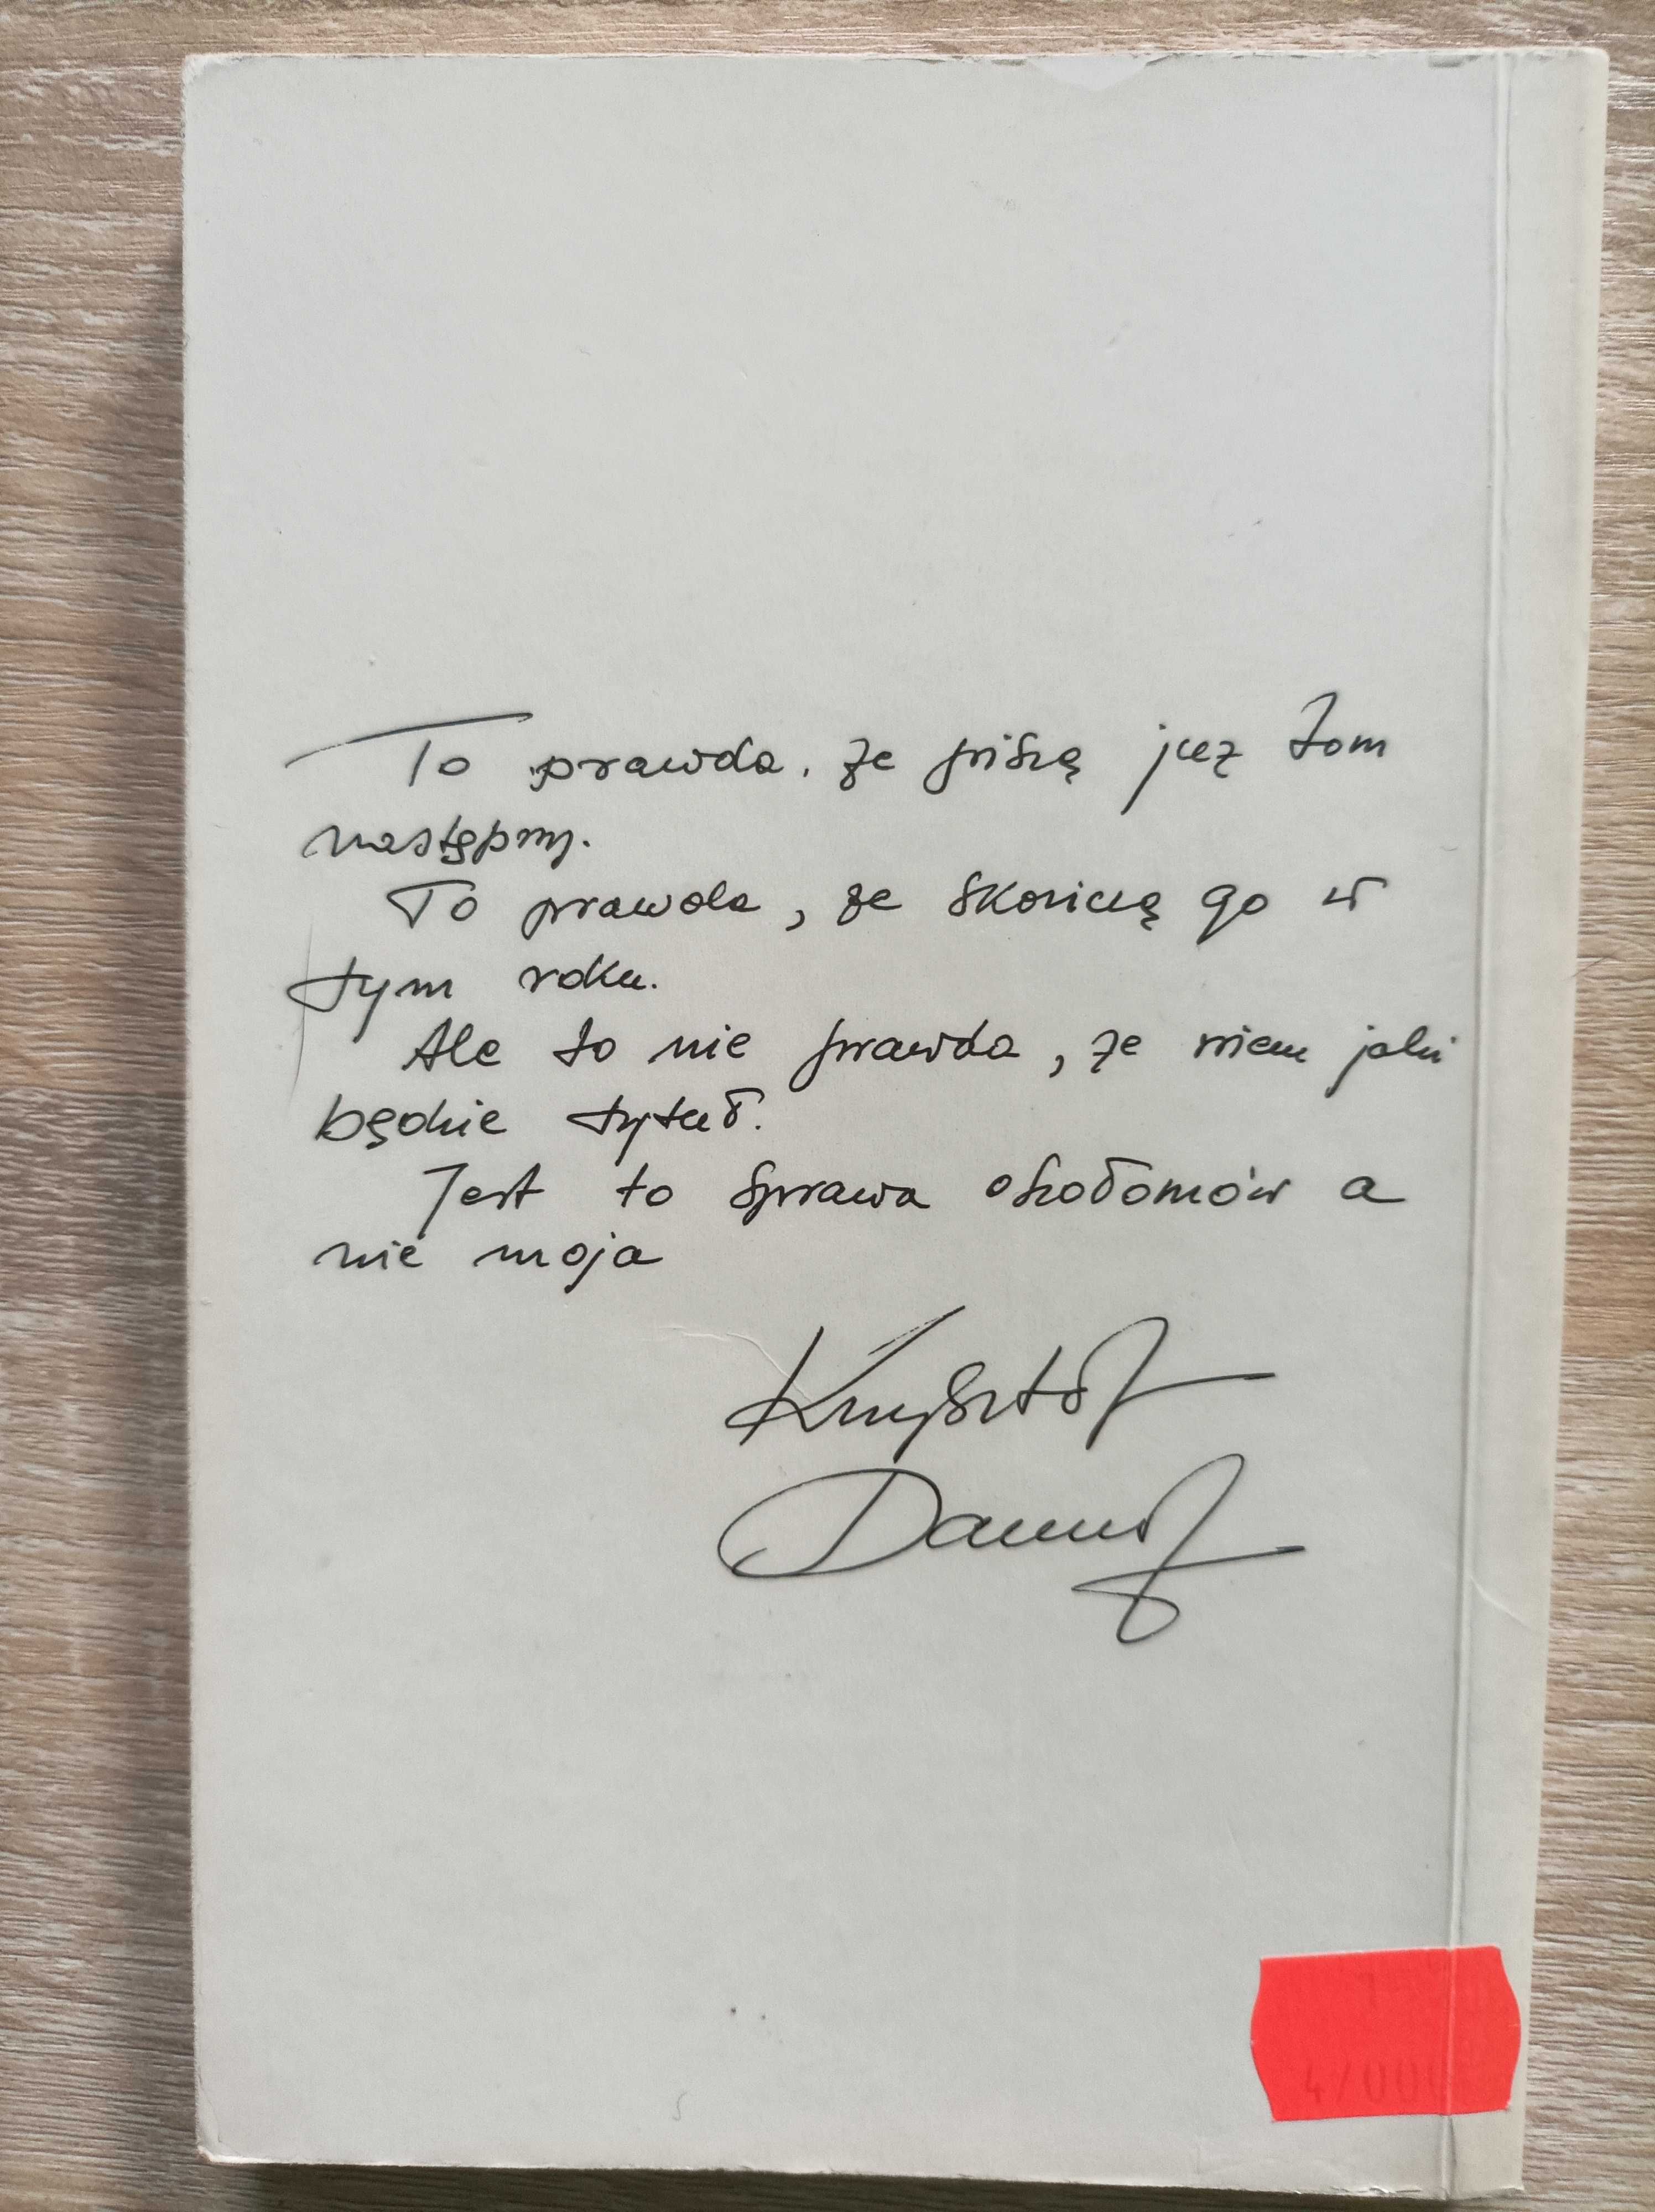 To prawda, że piszę już tom
następny.
To prawda, że skończę go w
tym roku.
Ale to nie prawda, że wiem jaki
będzie tytuł.
Jest to sprawa oszołomów a
nie moja
Krzysztof